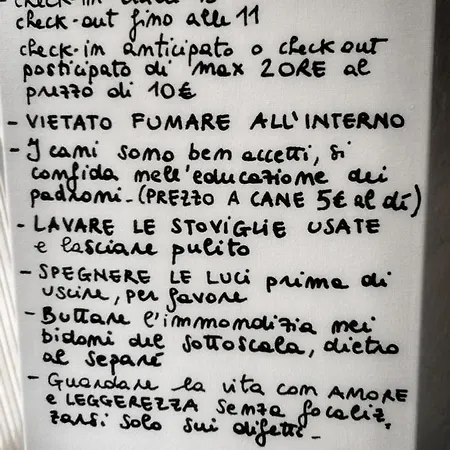 check-out fino alle 11
check-in anticipato o check out
posticipato di max 2 ORE al
prezzo di 10€
- VIETATO FUMARE ALL'INTERNO
- I cani sono ben accetti, si
confida nell'educazione dei
padroni. (PREZZO A CANE 5€ al dì)
- LAVARE LE STOVIGLIE USATE
e lasciare pulito
- SPEGNERE LE LUCI prima di
uscire, per favore
- Buttare l'immondizia nei
bidoni del sottoscala, dietro
al separé
- Guardare la vita con AMORE
e LEGGEREZZA senza focaliz,
zarsi solo sui difetti.